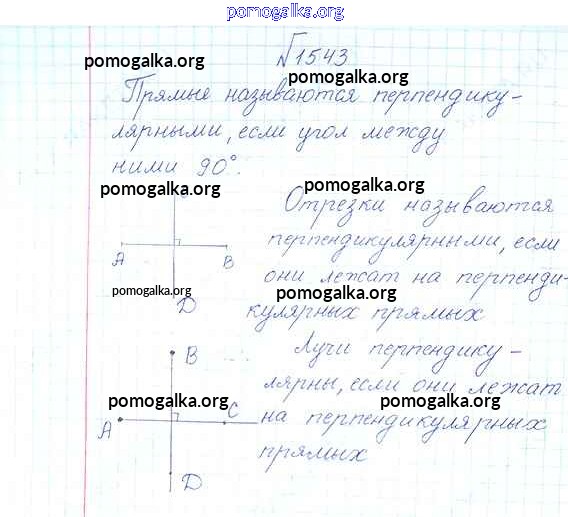 pomogalka.org
№1543
pomogalka.org pomogalka.org
Прямые называются перпендику-
лярными, если угол между
ними 90°.
pomogalka.org pomogalka.org
Отрезки называются
перпендикулярными, если
A B
они лежат на перпенди-
pomogalka.org pomogalka.org
D
кулярных прямых
B
Лучи перпендику-
лярны, если они лежат
pomogalka.org pomogalka.org
A C
на перпендикулярных
прямых
D